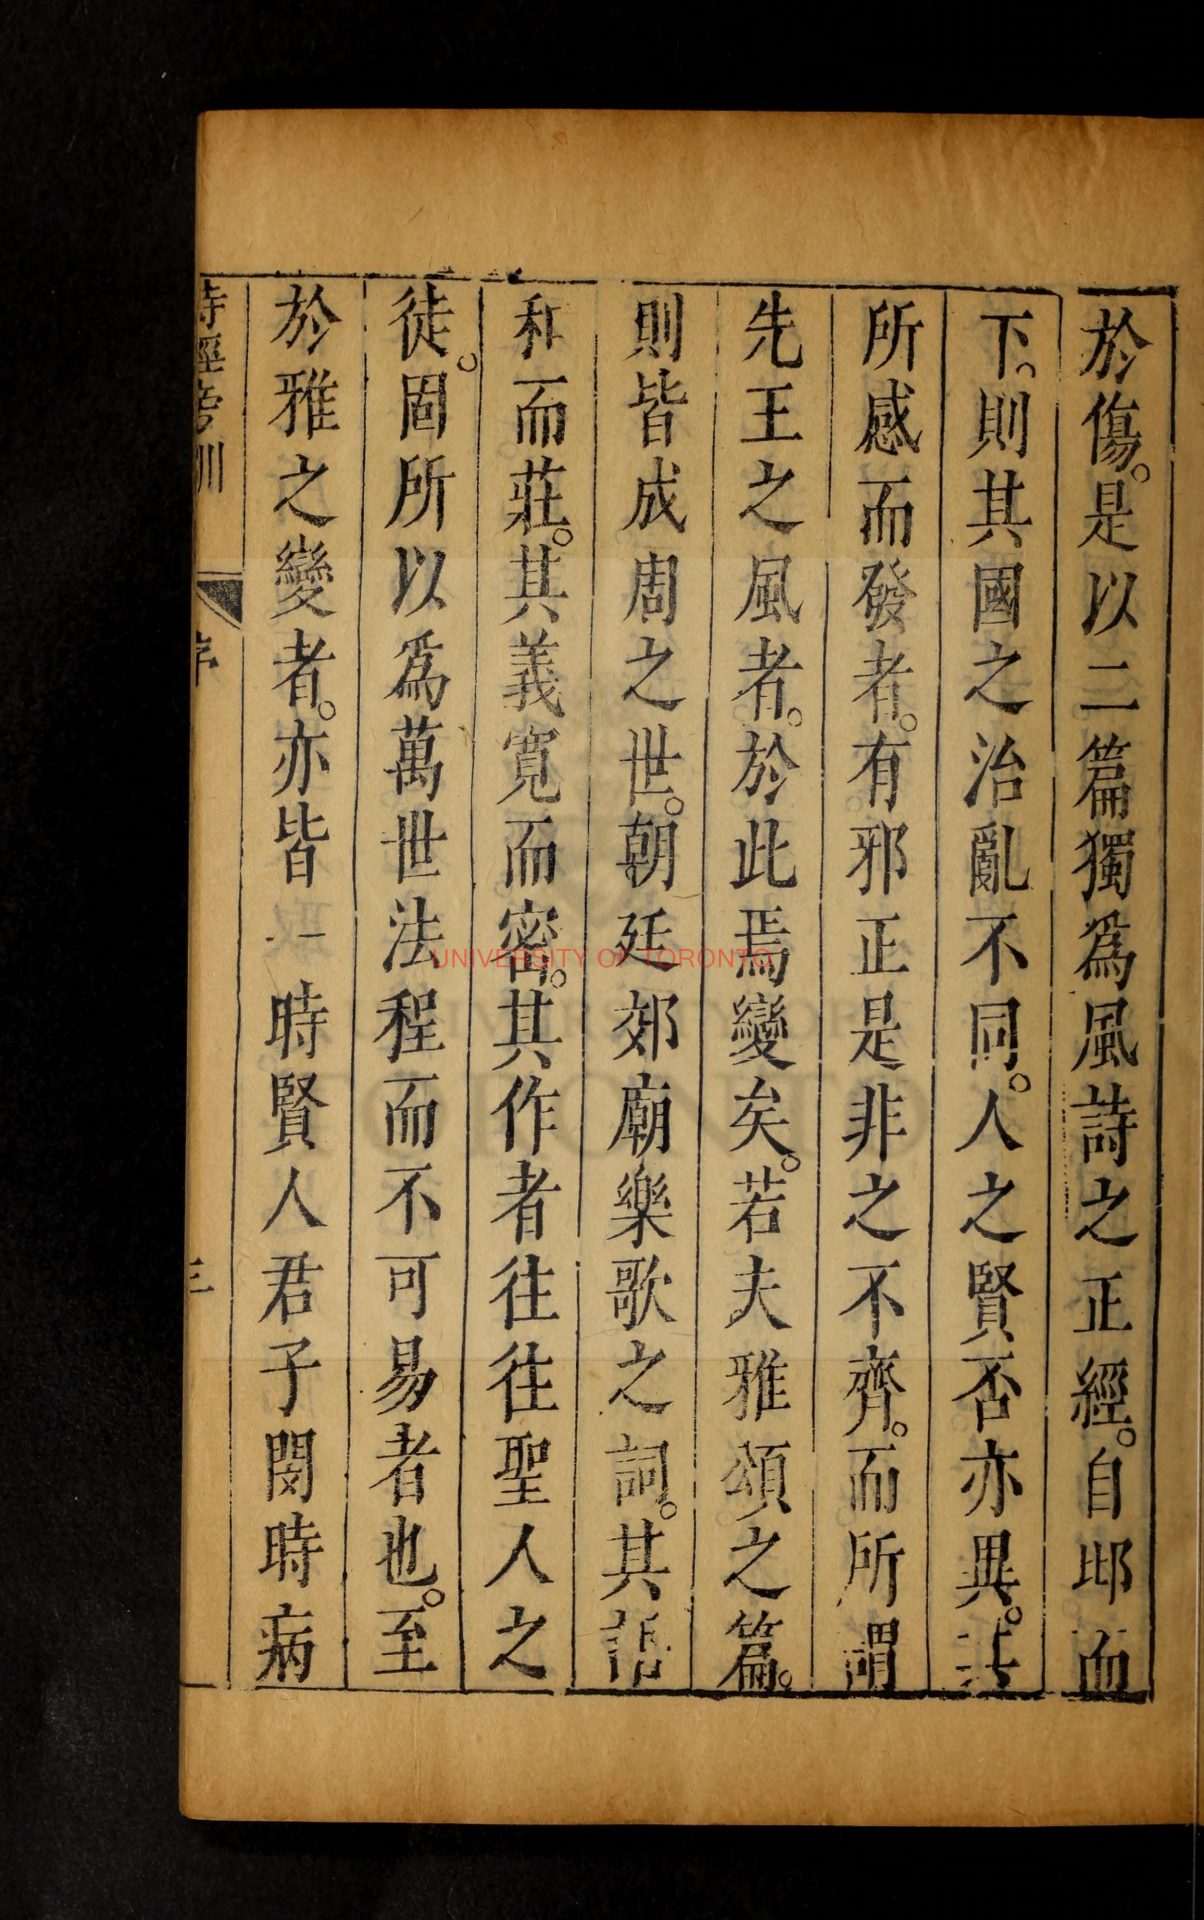 於傷。是以二篇獨爲風詩之正經。自邶而
下。則其國之治亂不同。人之賢否亦異。其
所感而發者。有邪正是非之不齊。而所謂
先王之風者。於此焉變矣。若夫雅頌之篇。
則皆成周之世。朝廷郊廟樂歌之詞。其語
和而莊。其義寬而密。其作者往往聖人之
徒。固所以爲萬世法程而不可易者也。至
於雅之變者。亦皆一時賢人君子閔時病
詩經旁訓 序 三
UNIVERSITY OF TORONTO